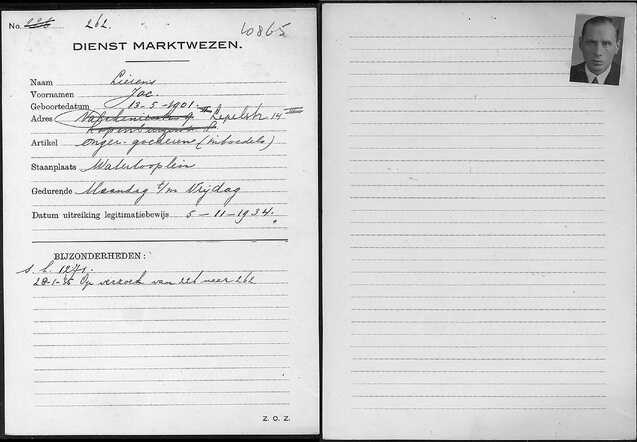 No. 226 262. 60865
DIENST MARKTWEZEN.
Naam Lierens
Voornamen Jac.
Geboortedatum 13-5-1901.
Adres Zepelstr 14 III
Artikel onger. goederen (inboedels)
Staanplaats Waterlooplein
Gedurende Maandag t/m Vrijdag
Datum uitreiking legitimatiebewijs 5-11-1934.
BIJZONDERHEDEN:
s. l. 1271.
28-1-35 Op verzoek van 226 naar 262
Z. O. Z.